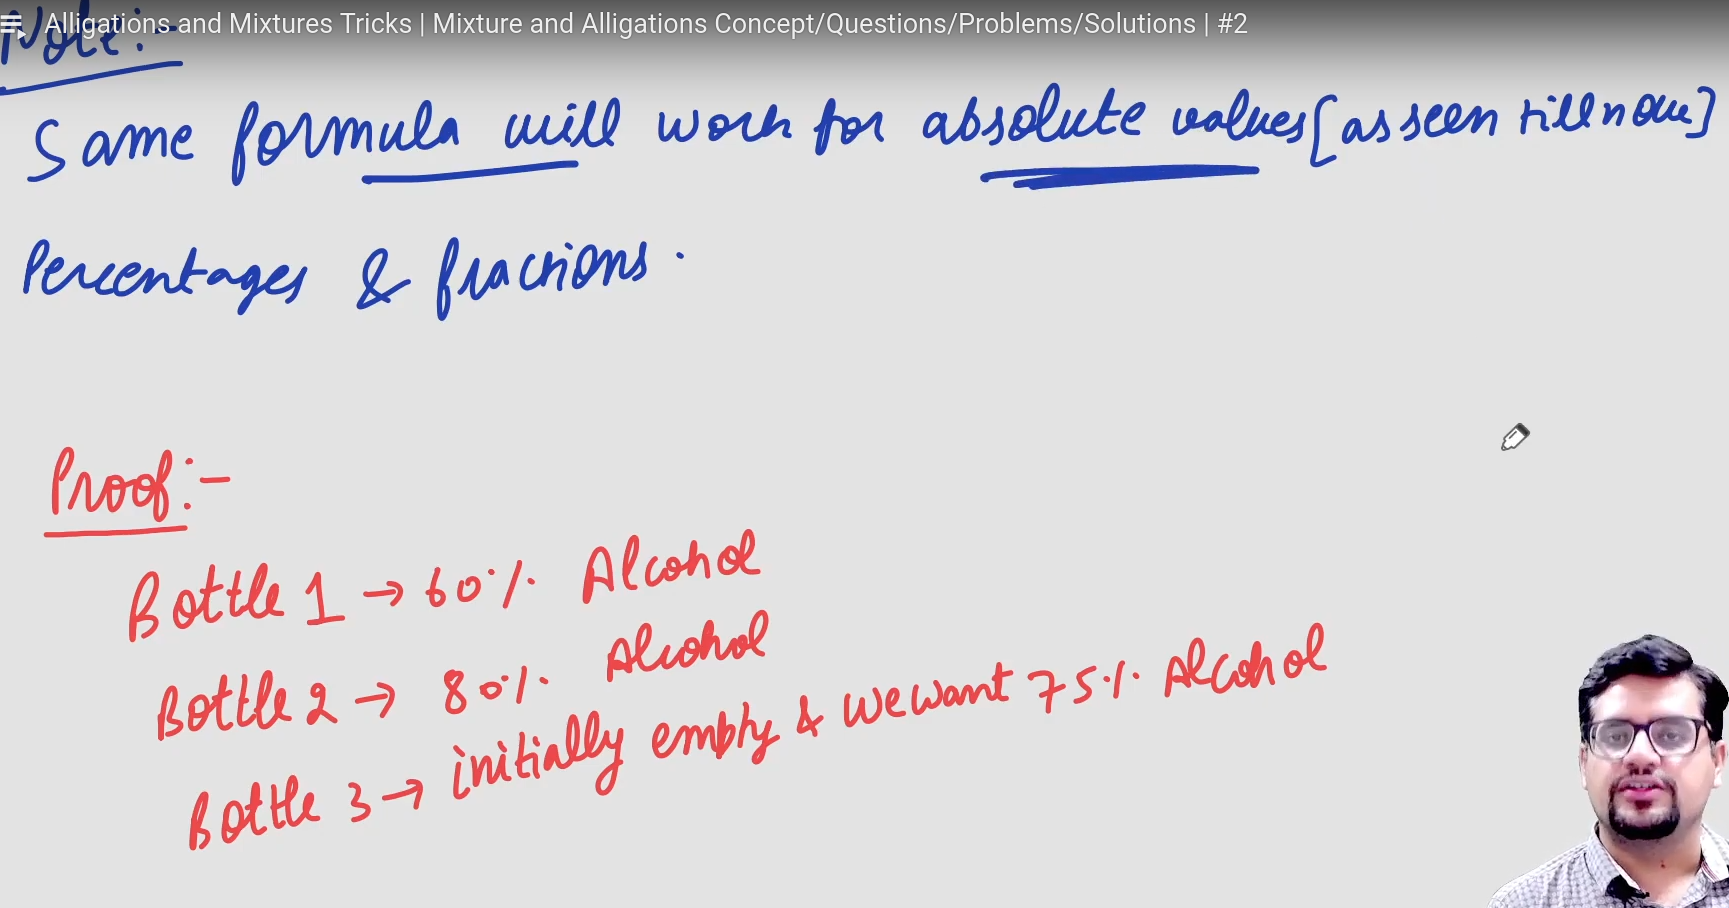 Alligations and Mixtures Tricks | Mixture and Alligations Concept/Questions/Problems/Solutions | #2
Note:-
Same formula will work for absolute values [as seen till now]
Percentages & fractions.
Proof:-
Bottle 1 → 60% Alcohol
Bottle 2 → 80% Alcohol
Bottle 3 → initially empty & we want 75% Alcohol